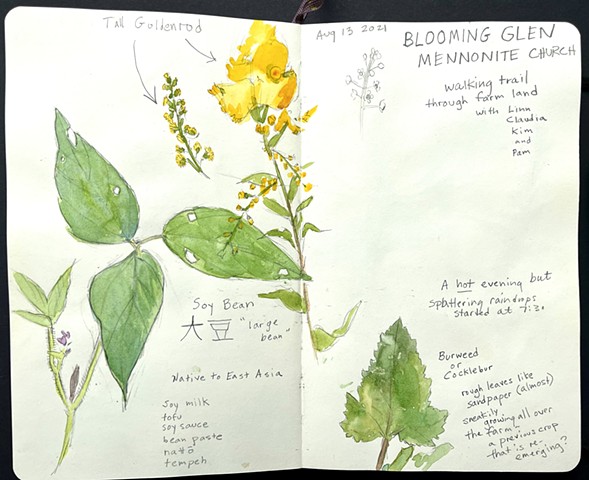 Tall Goldenrod
Soy Bean
大豆 "large
bean"
Native to East Asia
Soy milk
tofu
soy sauce
bean paste
natto
tempeh
Aug 13 2021
BLOOMING GLEN
MENNONITE CHURCH
walking trail
through farm land
with Linn
Claudia
Kim
and
Pam
A hot evening but
splattering raindrops
started at 7:30
Burweed
or
Cocklebur
rough leaves like
sandpaper (almost)
sneakily
growing all over
the farm"
a previous crop
that is re-
emerging?